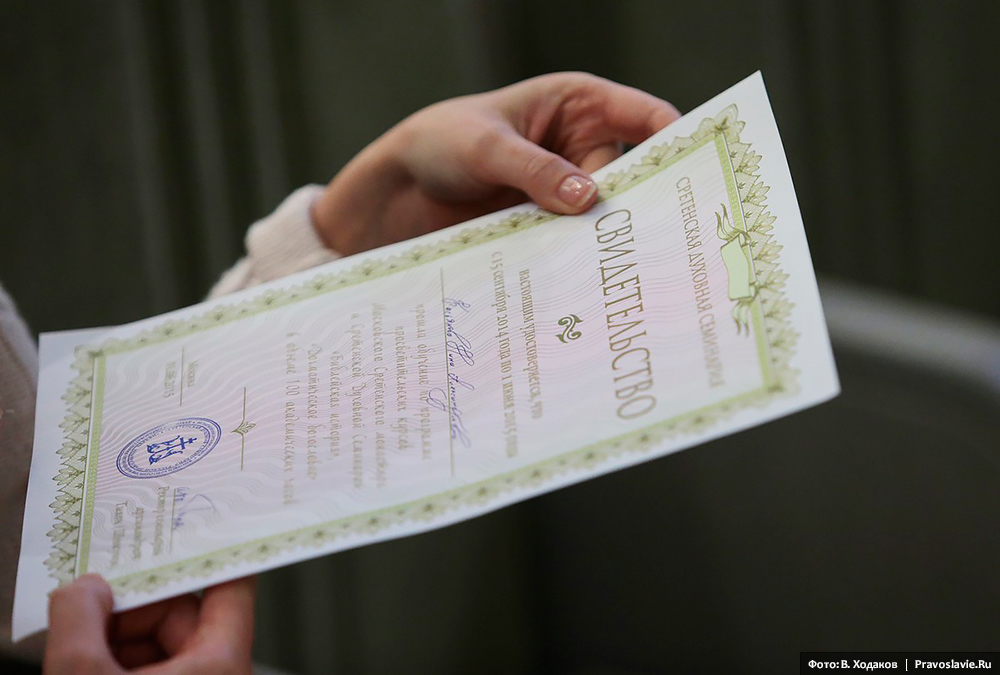 СРЕТЕНСКАЯ ДУХОВНАЯ СЕМИНАРИЯ
СВИДЕТЕЛЬСТВО
настоящим удостоверяется, что
с 15 сентября 2014 года по 1 июня 2015 года
прошла обучение по программе
просветительских курсов
Московского Сретенского монастыря
и Сретенской Духовной Семинарии
«Библейская история»
«Догматическое богословие»
в объеме 100 академических часов
Москва
Ректор семинарии
архимандрит
Тихон (Шевкунов)
Фото: В. Ходаков | Pravoslavie.Ru